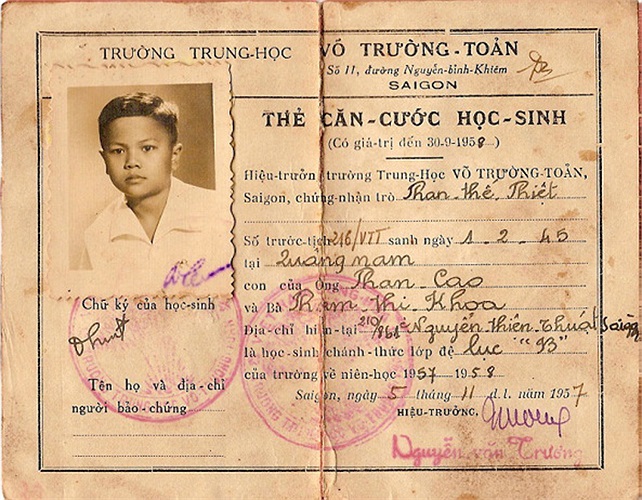 TRƯỜNG TRUNG-HỌC VÕ TRƯỜNG-TOẢN
Số 11, đường Nguyễn-bỉnh-Khiêm
SAIGON
THẺ CĂN-CƯỚC HỌC-SINH
(Có giá-trị đến 30-9-1958)
Hiệu-trưởng trường Trung-Học VÕ TRƯỜNG-TOẢN,
Saigon, chứng-nhận trò Phan thế Thiệt
Số trước-tịch 216/VTT sanh ngày 1-2-45
tại Quảng nam
con của Ông Phan Cao
và Bà Phạm thị Khoa
Địa-chỉ hiện-tại 210/ Nguyễn thiện Thuật Saigon
là học-sinh chánh-thức lớp đệ lục "B3"
của trường về niên-học 1957-1958
Saigon, ngày 5 tháng 11 d.l. năm 1957
HIỆU-TRƯỞNG,
Nguyễn văn Trương
Chữ ký của học-sinh
Tên họ và địa-chỉ
người bảo-chứng